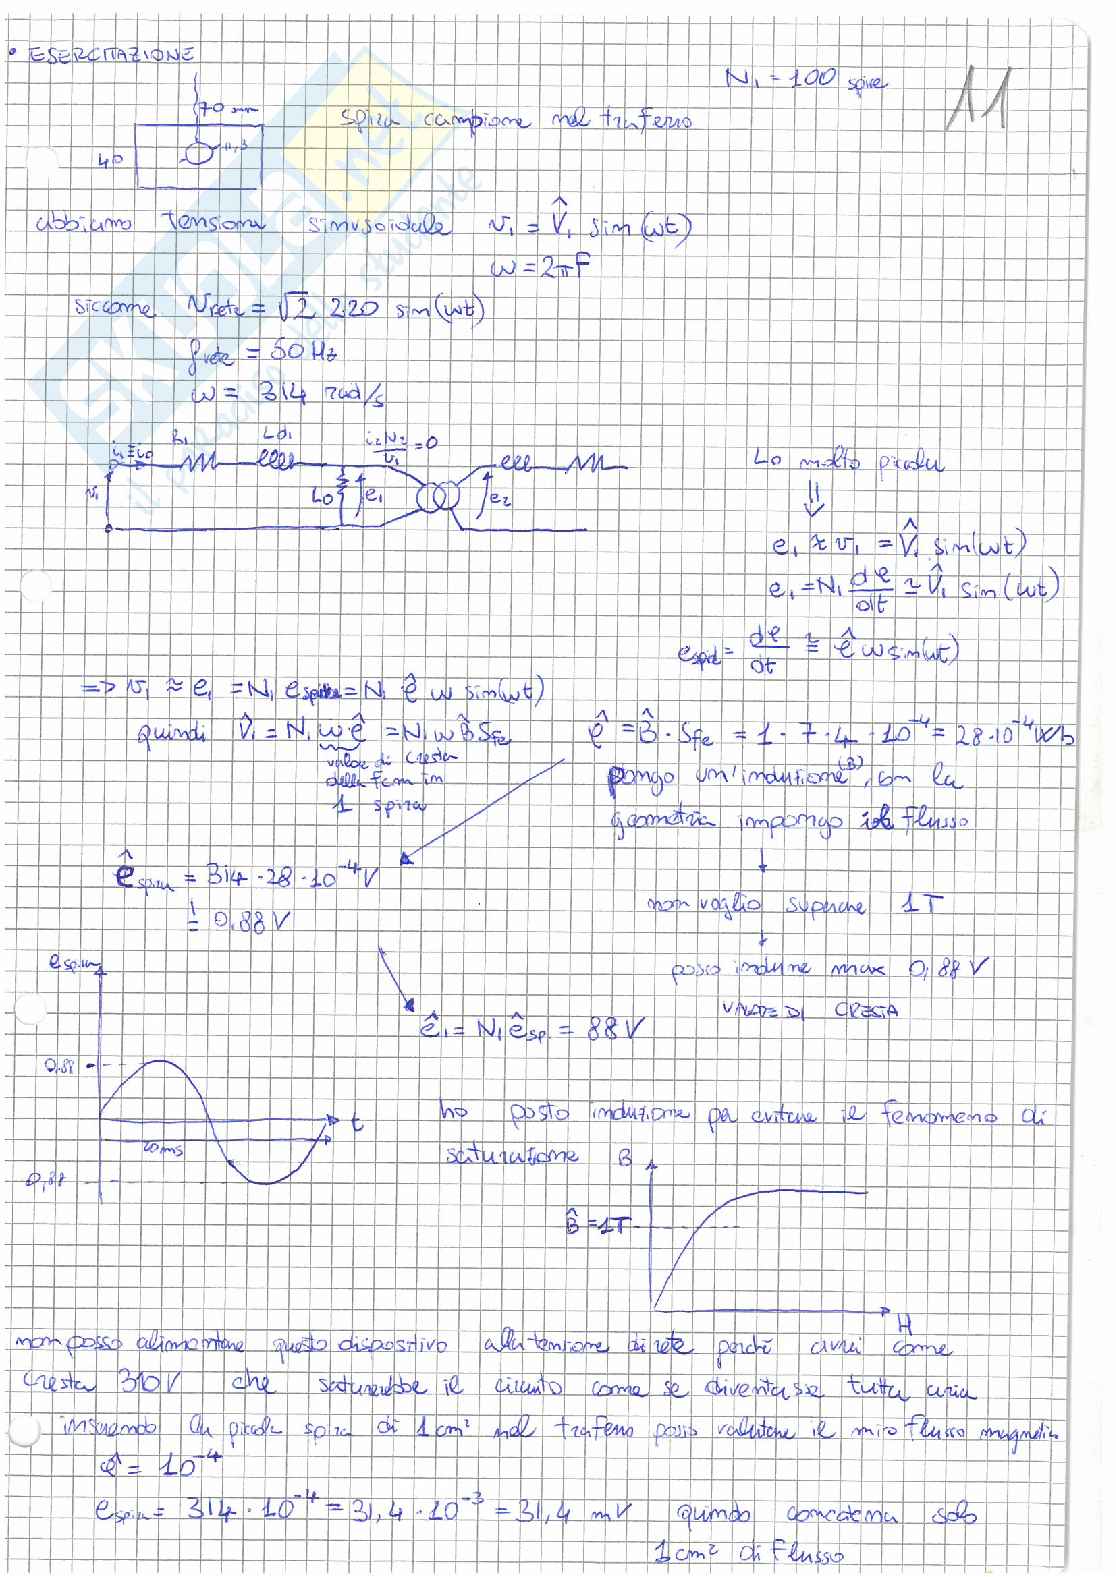 • ESERCITAZIONE
N₁ = 100 spire
11
70 mm
40
11,3
spira campione nel traferro
abbiamo tensione sinusoidale v₁ = V̂₁ sin(ωt)
ω = 2πF
siccome Vrete = √2 220 sin(ωt)
frete = 50 Hz
ω = 314 rad/s
i₁ ≅ i₀
R₁
Ld₁
i₂N₂/N₁ = 0
v₁
L₀
e₁
e₂
L₀ molto piccolu
⇓
e₁ ≈ v₁ = V̂₁ sin(ωt)
e₁ = N₁ dφ/dt ≃ V̂₁ sin(ωt)
espira = dφ/dt ≅ φ̂ ω sin(ωt)
=> v₁ ≈ e₁ = N₁ espira = N₁ φ̂ ω sin(ωt)
quindi V̂₁ = N₁ ω φ̂ = N₁ ω B̂ Sfe
valore di cresta
della fem in
1 spira
φ̂ = B̂ · Sfe = 1 · 7 · 4 · 10⁻⁴ = 28 · 10⁻⁴ Wb
pongo un'induzione (B), con la
geometria impongo il flusso
↓
non voglio superare 1T
↓
posso indurre max 0,88 V
VALORE DI CRESTA
ê spira = 314 · 28 · 10⁻⁴ V
= 0,88 V
ê₁ = N₁ êsp. = 88 V
espira
0,88
20 ms
t
-0,88
ho posto induzione per evitare il fenomeno di
saturazione
B
B̂ = 1T
H
non posso alimentare questo dispositivo alla tensione di rete perché avrei come
cresta 310 V che saturerebbe il circuito come se diventasse tutta aria
inserendo la piccola spira di 1 cm² nel traferro posso valutare il mio flusso magnetico
φ̂ = 10⁻⁴
espira = 314 · 10⁻⁴ = 31,4 · 10⁻³ = 31,4 mV quindo concatena solo
1 cm² di flusso
SKUOLA.net
il paradiso dello studente